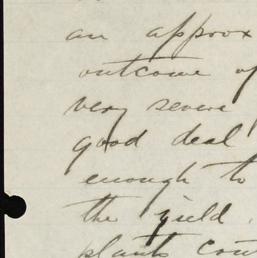 an approx
outcome of
very severe
good deal
enough to
the yield.
plants cou